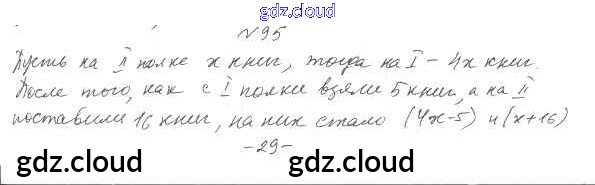 gdz.cloud
№95
Пусть на II полке x книг, тогда на I – 4x книг.
После того, как с I полки взяли 5 книг, а на II
поставили 16 книг, на них стало (4x-5) и (x+16)
-29-
gdz.cloud gdz.cloud gdz.cloud